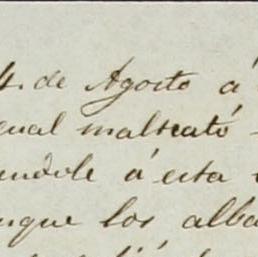 4. de Agosto á
cual maltrató
endole á esta
unque los alba